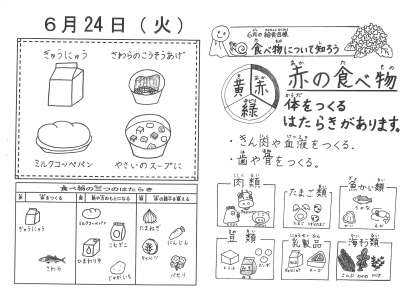 6月24日（火）
ぎゅうにゅう
さわらのこうそうあげ
ミルクコッペパン
やさいのスープに
食べ物の三つのはたらき
赤 体をつくる
ぎゅうにゅう
さわら
ミルクコッペパン
こむぎこ
ひまわり油
じゃがいも
たまねぎ
にんじん
キャベツ
パセリ
6月の給食目標
食べ物について知ろう
黄
赤
緑
赤の食べ物
体をつくる
はたらきがあります。
・きん肉や血液をつくる。
・歯や骨をつくる。
肉類
たまご類
魚かい類
豆類
乳製品
海そう類